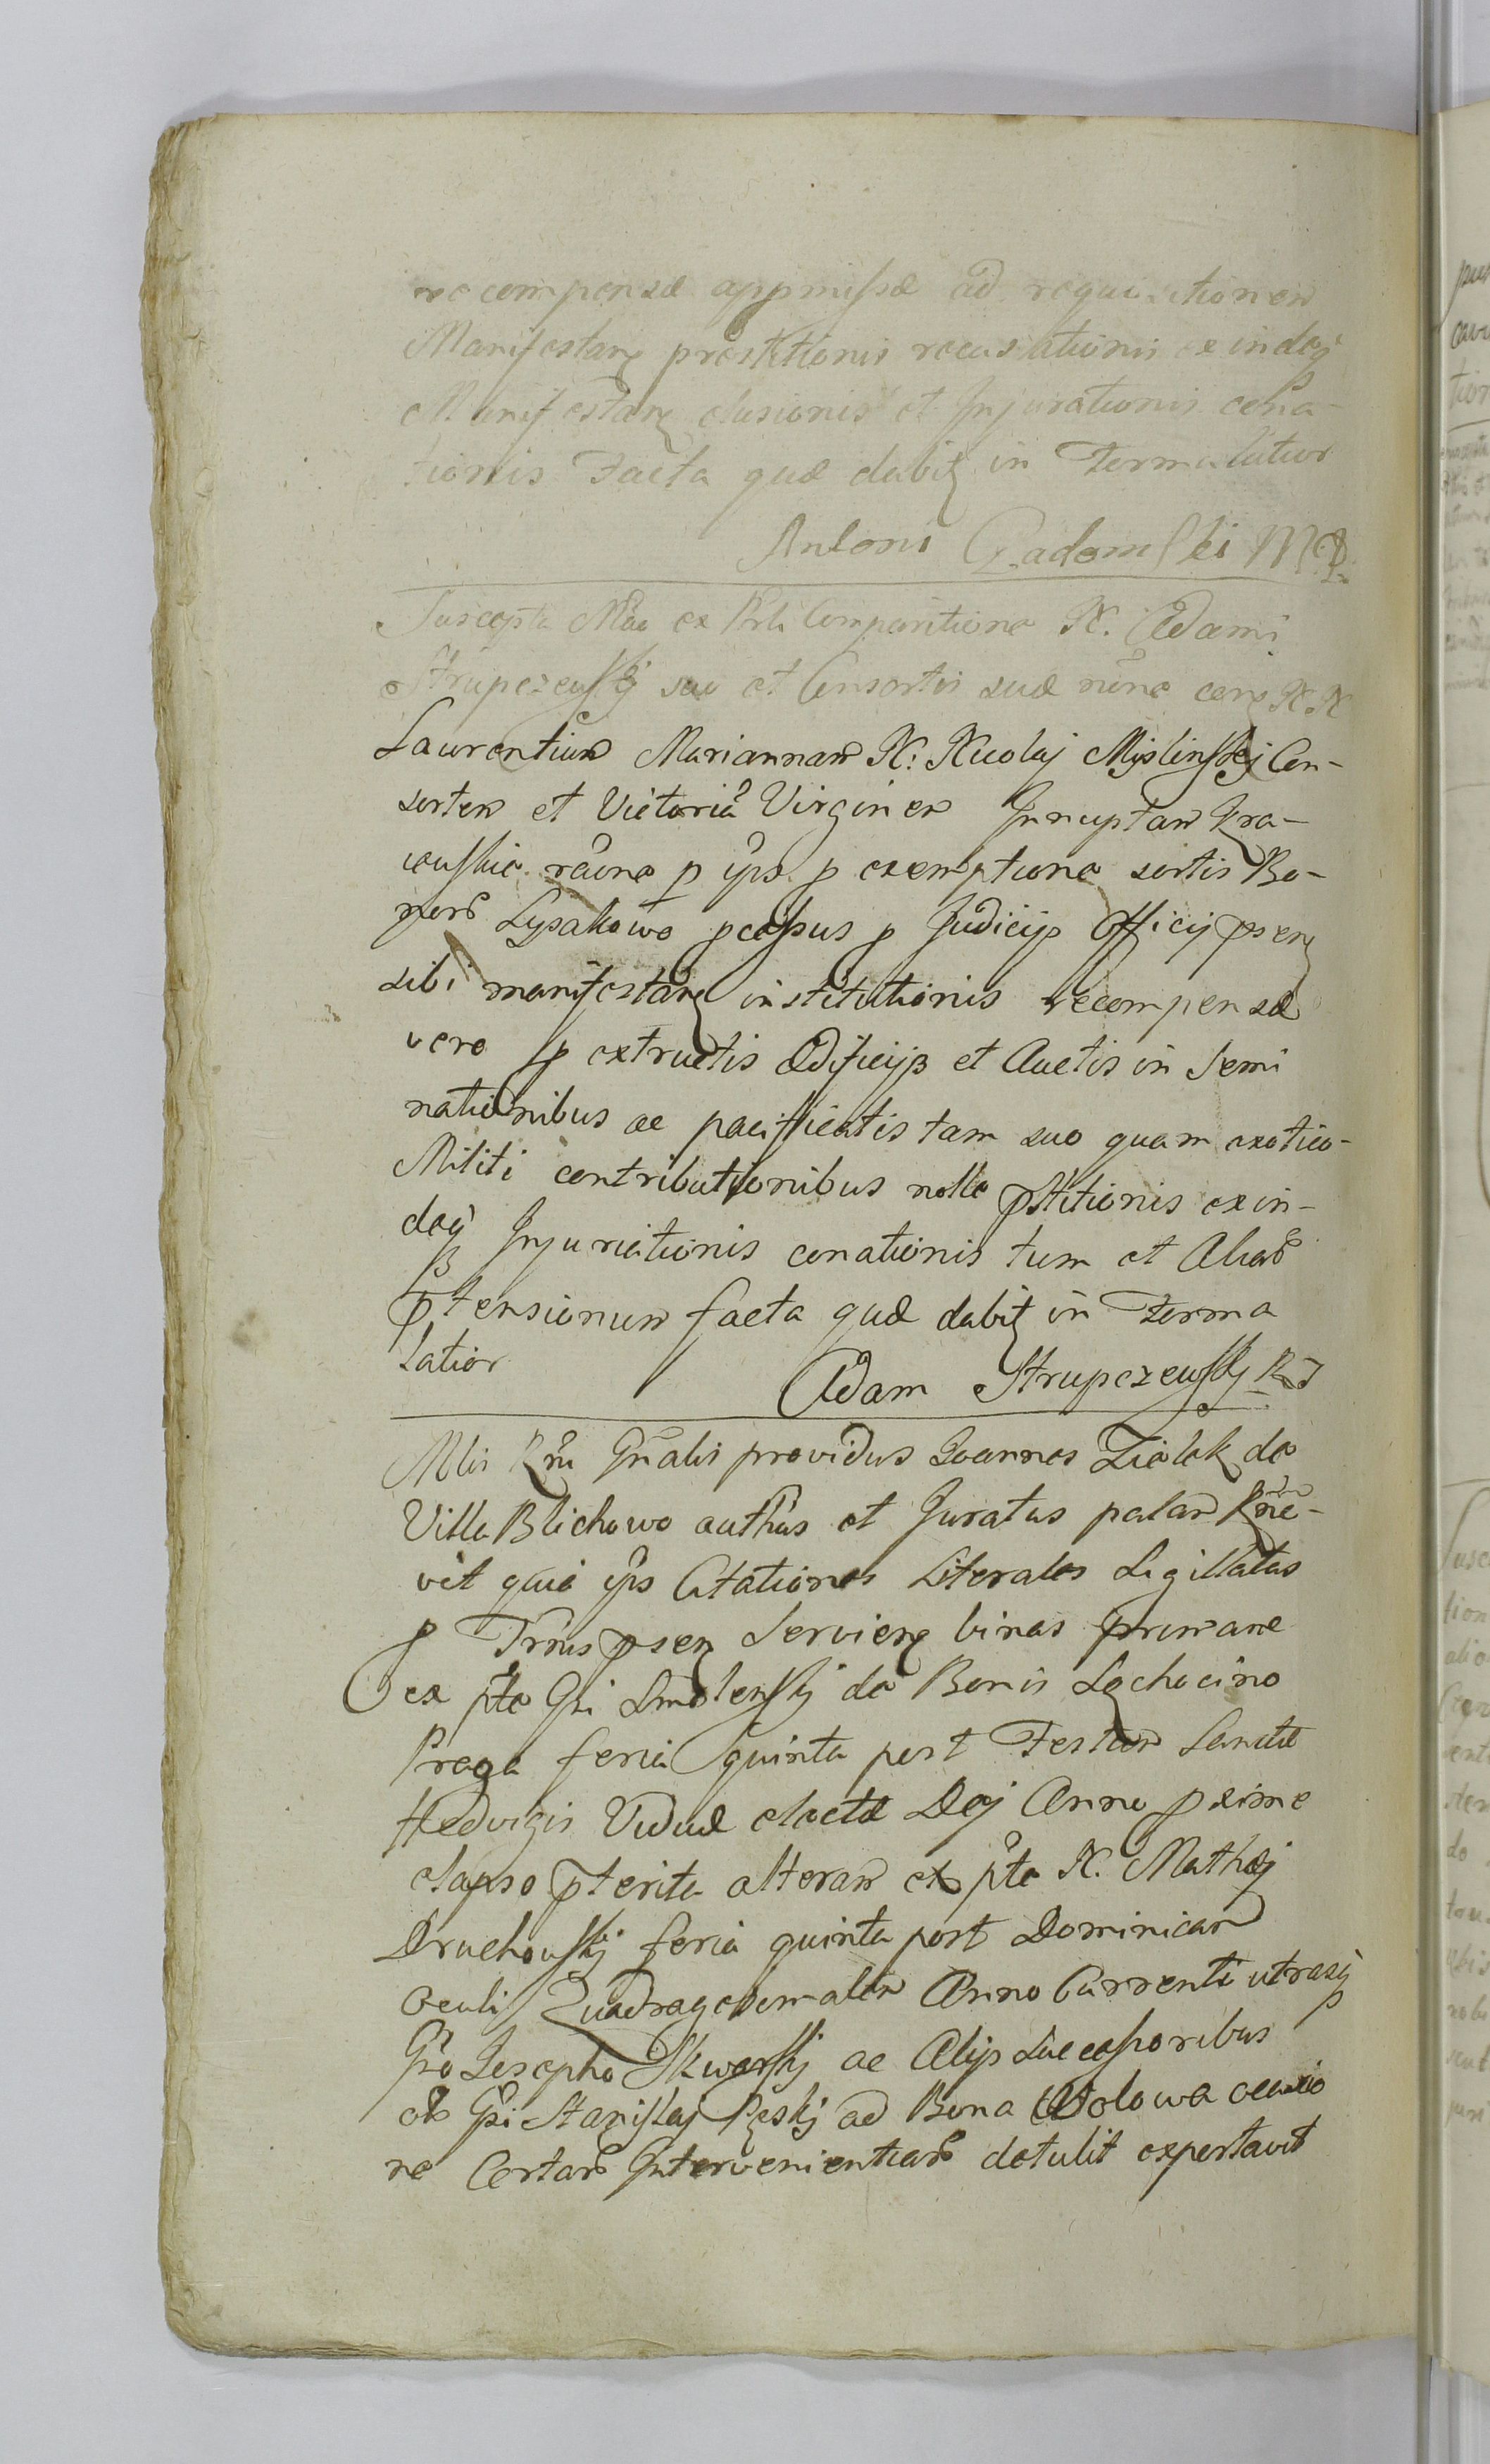 recompensæ appmissæ ad requisitionem
Manifestan͠ præstitionis recusationis exindeq̃
Manifestan͠ elusionis et Injurationis cona-
tionis Facta quæ dabit͠ in Forma latior
Antoni Gadomski MP
Suscepta Mão ex Prli Comparitione N. Adami
Strupczewskj suo et Consortis suæ nõne con͠ N.N
Laurentium Mariannam N: Nicolaj Myslinskj Con-
sortem et Victoriã Virginem Innuptam Kra-
iewskie rãone p ips. p exemptione sortis Bo-
norũ Lysakowo pcessus p Judicijs Officij psen͠
sibi manifestan͠ institutionis recompensæ
vero p extructis Ædificijs et Auctis in Semi
nationibus ac pacificatis tam suo quam exotico-
Militi contributionibus nolle pstitionis exin-
deq̃ Injuriationis conationis tum et Aliarũ
ptensionum facta quæ dabit͠ in Forma
latior
Adam Strupczewskj
Mlis Rñi Gñalis providus Joannes Ziolek de
Villa Blichowo authũs et Juratus palam Rñe-
vit quia ips Citationes Literales Sigillatas
p Trñis psen͠ Servien͠ binas primam
ex pte Gsi Smolenskj de Bonis Lochocino
Praga feria quinta post Festum Sanctæ
Hedvigis Viduæ electæ Dej Anno pxime
elapso pterita alteram ex pte N. Mathæj
Druchowskj feria quinta post Dominicam
Oculi Quadragesimalem Anno Currenti utrasq̃
Gso Josepho Skwarskj ac Alijs Successoribus
ol. Gsi Stanislaj Reskj ad Bona Wolowa occasio
ne Certarũ Intervenientiarũ detulit exportavit